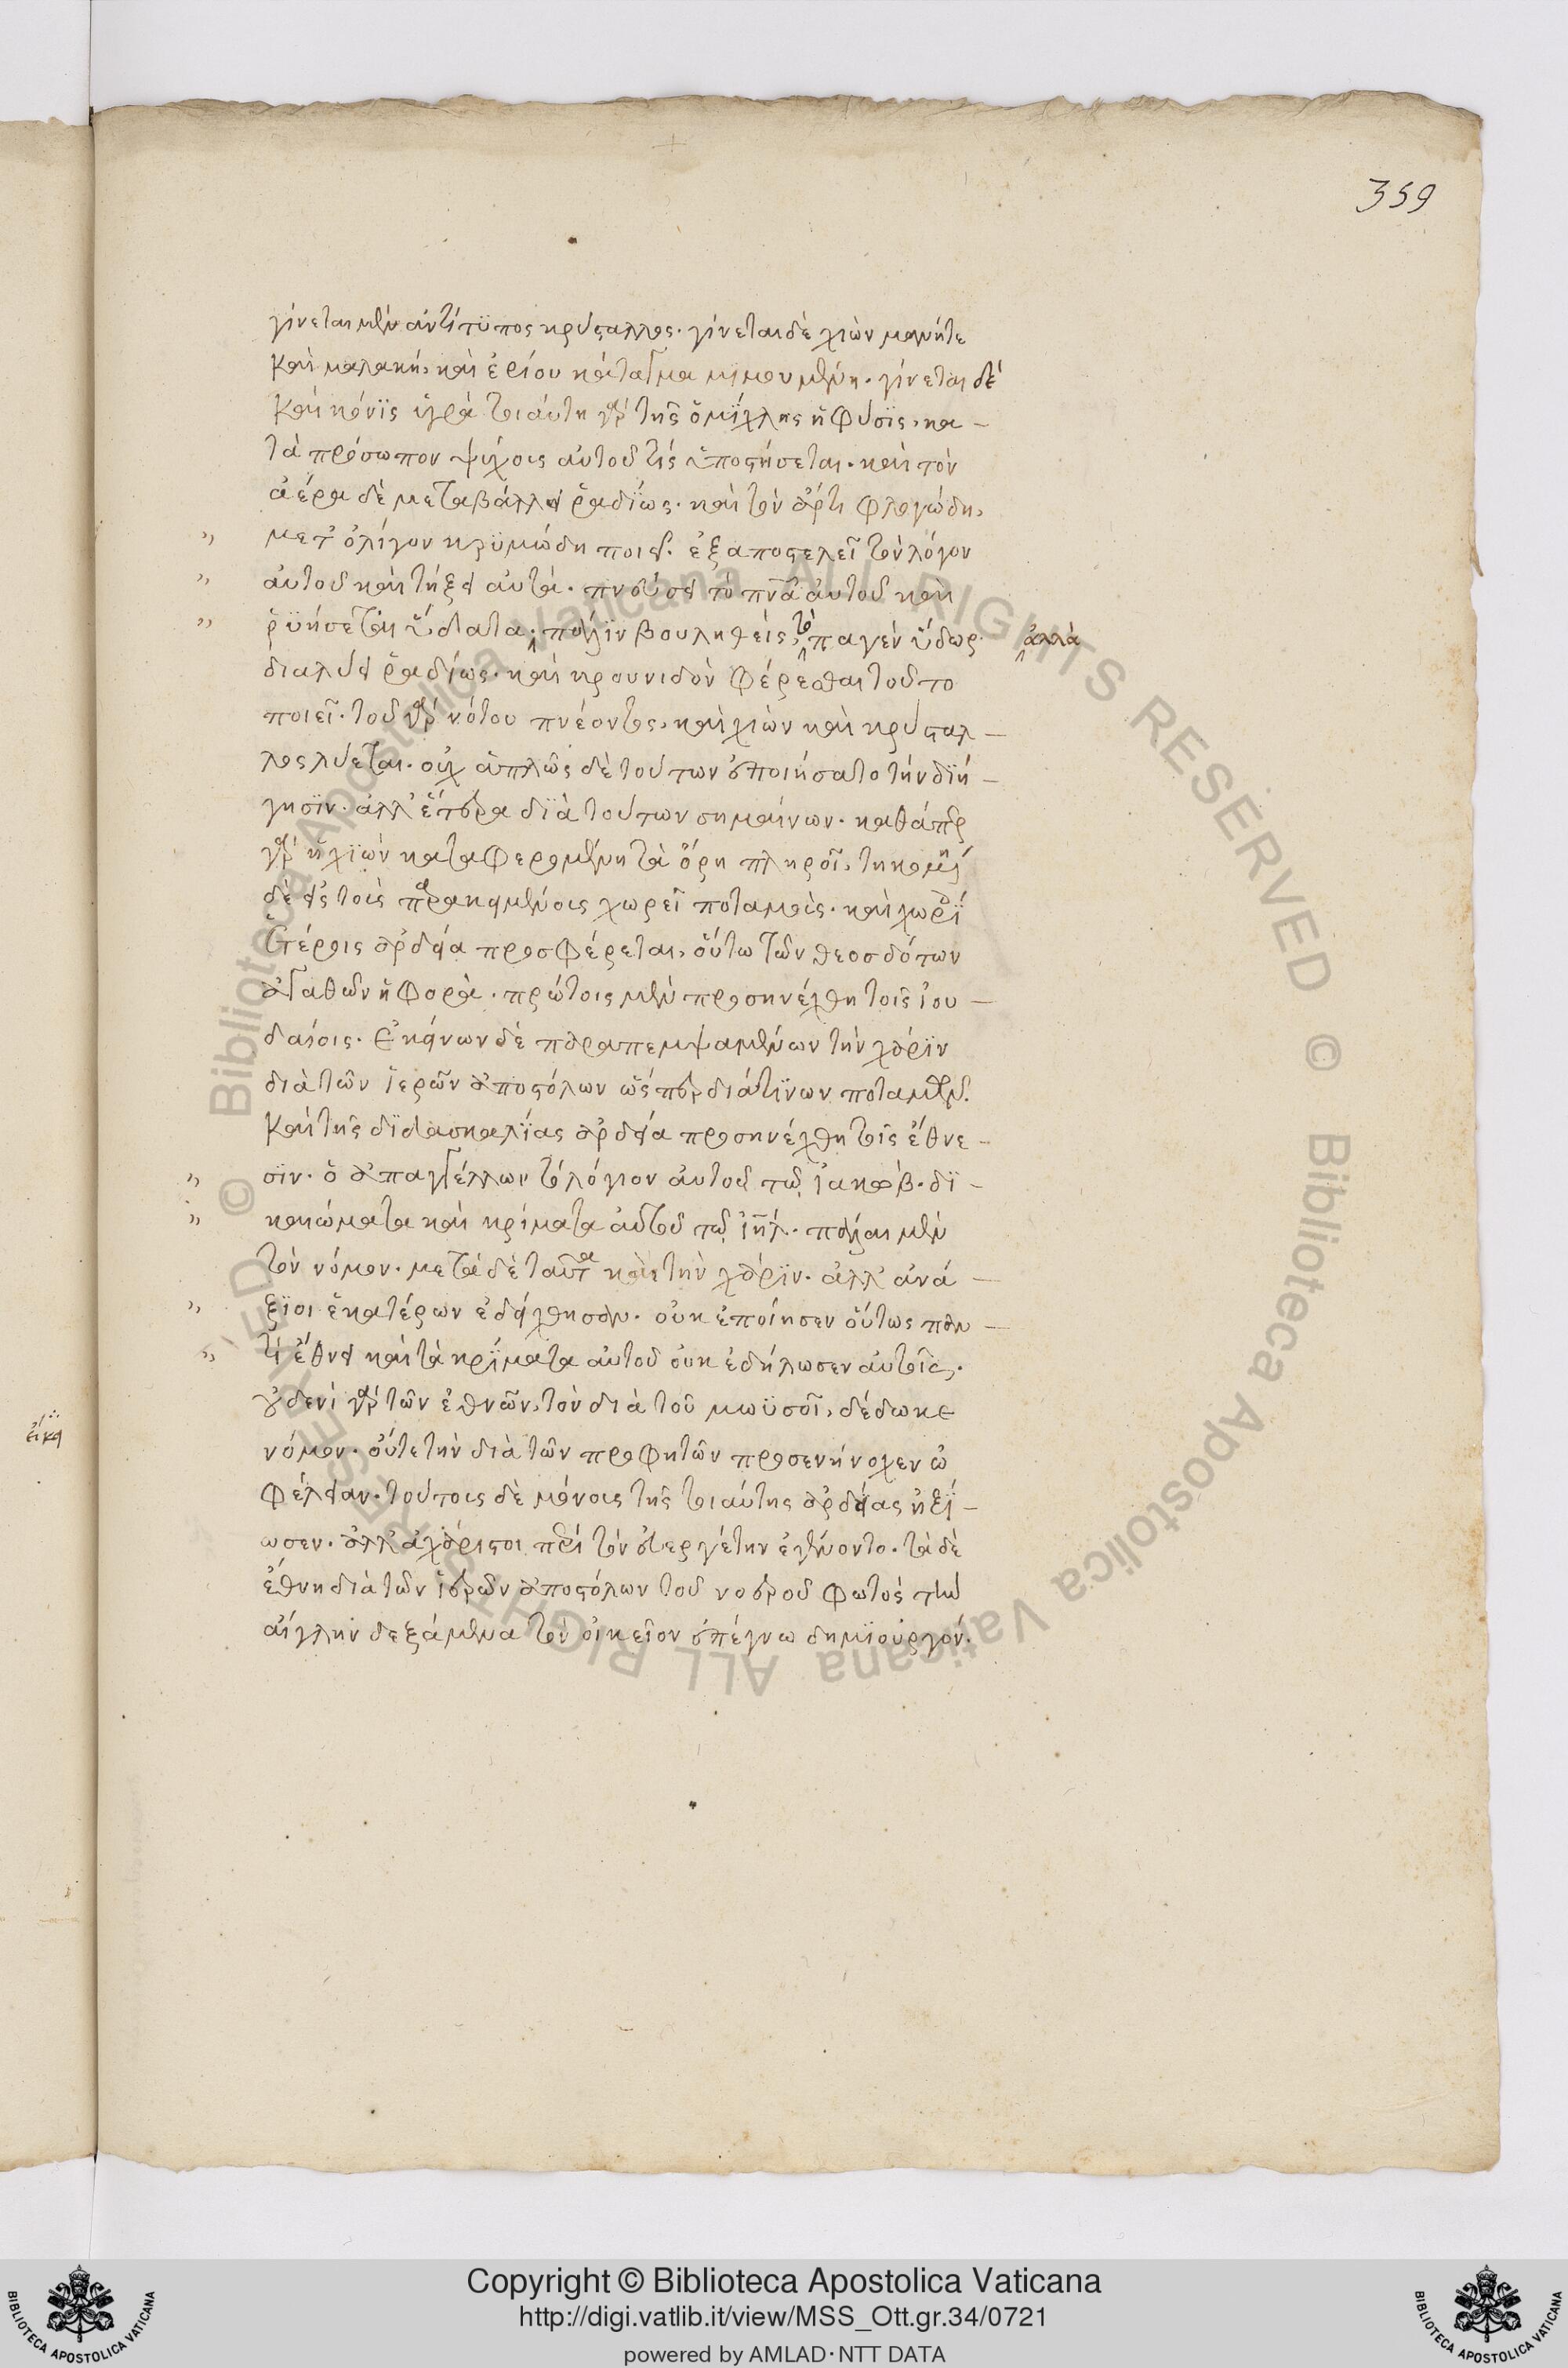 359
γίνεται μὲν ἀντίτϋπος κρύσταλλος· γίνεται δὲ χιὼν μανήτε
καὶ μαλακὴ, καὶ ἐρίου κάταγμα μιμουμένη· γίνεται δὲ
καὶ κόνϊς ὑγρὰ τοιάυτη γὰρ τῆς ὁμΐχλης ἡ φύσϊς, κα-
τὰ πρόσωπον ψύχους αὐτοῦ τίς ὑποστήσεται· καὶ τὸν
ἀέρα δὲ μεταβάλλει ῥαδίως· καὶ τὸν ἄρτι φλογώδη,
μετ' ὀλίγον κρϋμώδη ποιεῖ. ἐξαποστελεῖ τὸν λόγον
ἀυτοῦ καὶ τήξει αὐτά· πνεύσει τὸ πνᾶ ἀυτοῦ καὶ
ῥϋήσεται ὕδατα· πάλϊν βουληθεὶς, τὸ παγὲν ὕδωρ· ἀλλὰ
διαλύει ῥαδίως· καὶ κρουνιδὸν φέρεσθαι τοῦτο
ποιεῖ· τοῦ γὰρ νότου πνέοντος, καὶ χιὼν καὶ κρύσταλ-
λος λύεται· οὐχ ἁπλῶς δὲ τούτων ἐποιήσατο τὴν διή-
γησϊν· ἀλλ' ἕτερα διὰ τούτων σημαίνων· καθάπερ
γὰρ ἡ χϊὼν καταφερομένη τὰ ὄρη πληροῖ, τηκομένη
δὲ εἰς τοὺς παρακειμένους χωρεῖ ποταμοὺς· καὶ χωρΐοις
ἑτέροις ἀρδεία προσφέρεται, ὅυτω τῶν θεοσδότων
ἀγαθῶν ἡ φορὰ· πρώτοις μὲν προσηνέχθη τοῖς ἰου-
δαίοις· ἐκείνων δὲ παραπεμψαμένων τὴν χάρϊν
διὰ τῶν ἱερῶν ἀποστόλων ὥσπερ διά τϊνων ποταμῶν.
καὶ τῆς διδασκαλΐας ἀρδεία προσηνέχθη τοῖς ἔθνε-
σϊν· ὁ ἀπαγγέλλων τὸ λόγιον ἀυτοῦ τῷ ἰακώβ· δϊ-
καιώματα καὶ κρίματα ἀυτοῦ τῷ ἰηλ· πάλαι μὲν
τὸν νόμον· μετὰ δὲ ταῦτα καὶ τὴν χάρϊν· ἀλλ' ἀνά-
ξϊοι ἑκατέρων ἐδείχθησαν· οὐκ ἐποίησεν οὕτως παν-
τὶ ἔθνει καὶ τὰ κρΐματα αὐτοῦ οὐκ ἐδήλωσεν ἀυτοῖς.
οὐδενὶ γὰρ τῶν ἐθνῶν, τὸν διὰ τοῦ μωϋσοῖ, δέδωκε
νόμον· οὔτε τὴν διὰ τῶν προφητῶν προσενήνοχεν ὠ
φέλειαν· τούτοις δὲ μόνοις τῆς τοιαύτης ἀρδείας ἠξΐ-
ωσεν· ἀλλ' ἀχάριστοι περὶ τὸν ἐυεργέτην ἐγένοντο· τὰ δὲ
ἔθνη διὰ τῶν ἱερῶν ἀποστόλων τοῦ νοεροῦ φωτὸς τὴν
αἴγλην δεξάμενα τὸν οἰκεῖον ἐπέγνω δημϊουργόν.
Copyright © Biblioteca Apostolica Vaticana
http://digi.vatlib.it/view/MSS_Ott.gr.34/0721
powered by AMLAD·NTT DATA
BIBLIOTECA APOSTOLICA VATICANA
BIBLIOTECA APOSTOLICA VATICANA
© Biblioteca Apostolica Vaticana ALL RIGHTS RESERVED © Biblioteca Apostolica Vaticana ALL RIGHTS RESERVED